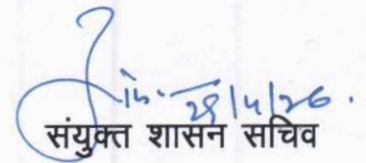 28/4/26.
संयुक्त शासन सचिव